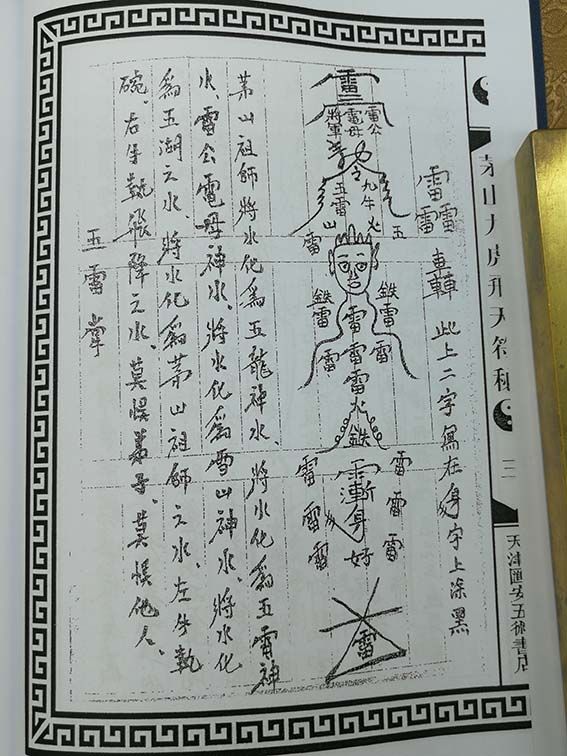 茅山九虎飛天符秘
三
天津匯安五術書店
雷雷雷 轟 此上二字寫在身字上涂黑
雷
雷公
電母
將軍
令
九牛
五雷
火
山
五
雷
鉄雷
雷
鉄雷
雷
雷雷雷火鉄
漸身好
雷雷雷
雷雷雷
雷
茅山祖師將水化為五龍神水、將水化為五雷神
水、雷公電母神水、將水化為雪山神水、將水化
為五湖之水、將水化為茅山祖師之水、左手執
碗、右手執飛降之水、莫悮弟子、莫悮他人、
五雷掌